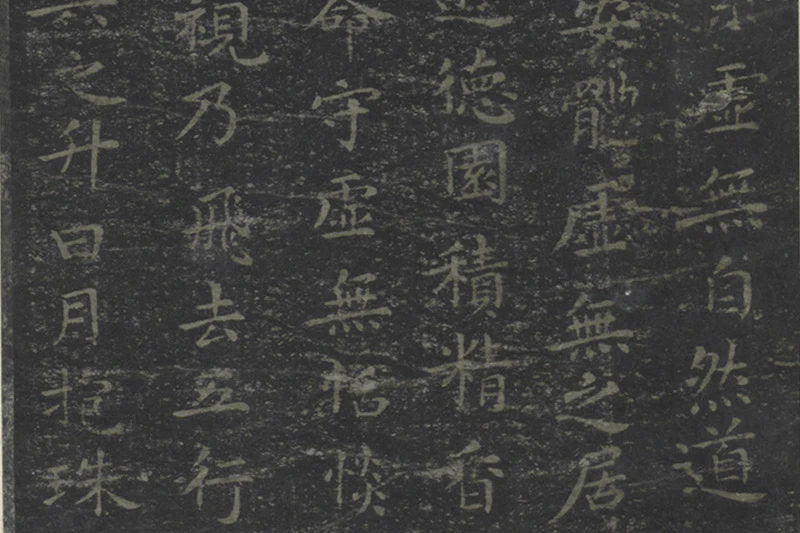 虛無自然道
安體虛無之居
德園積精香
命守虛無恬惔
視乃飛去五行
六之升日月抱珠